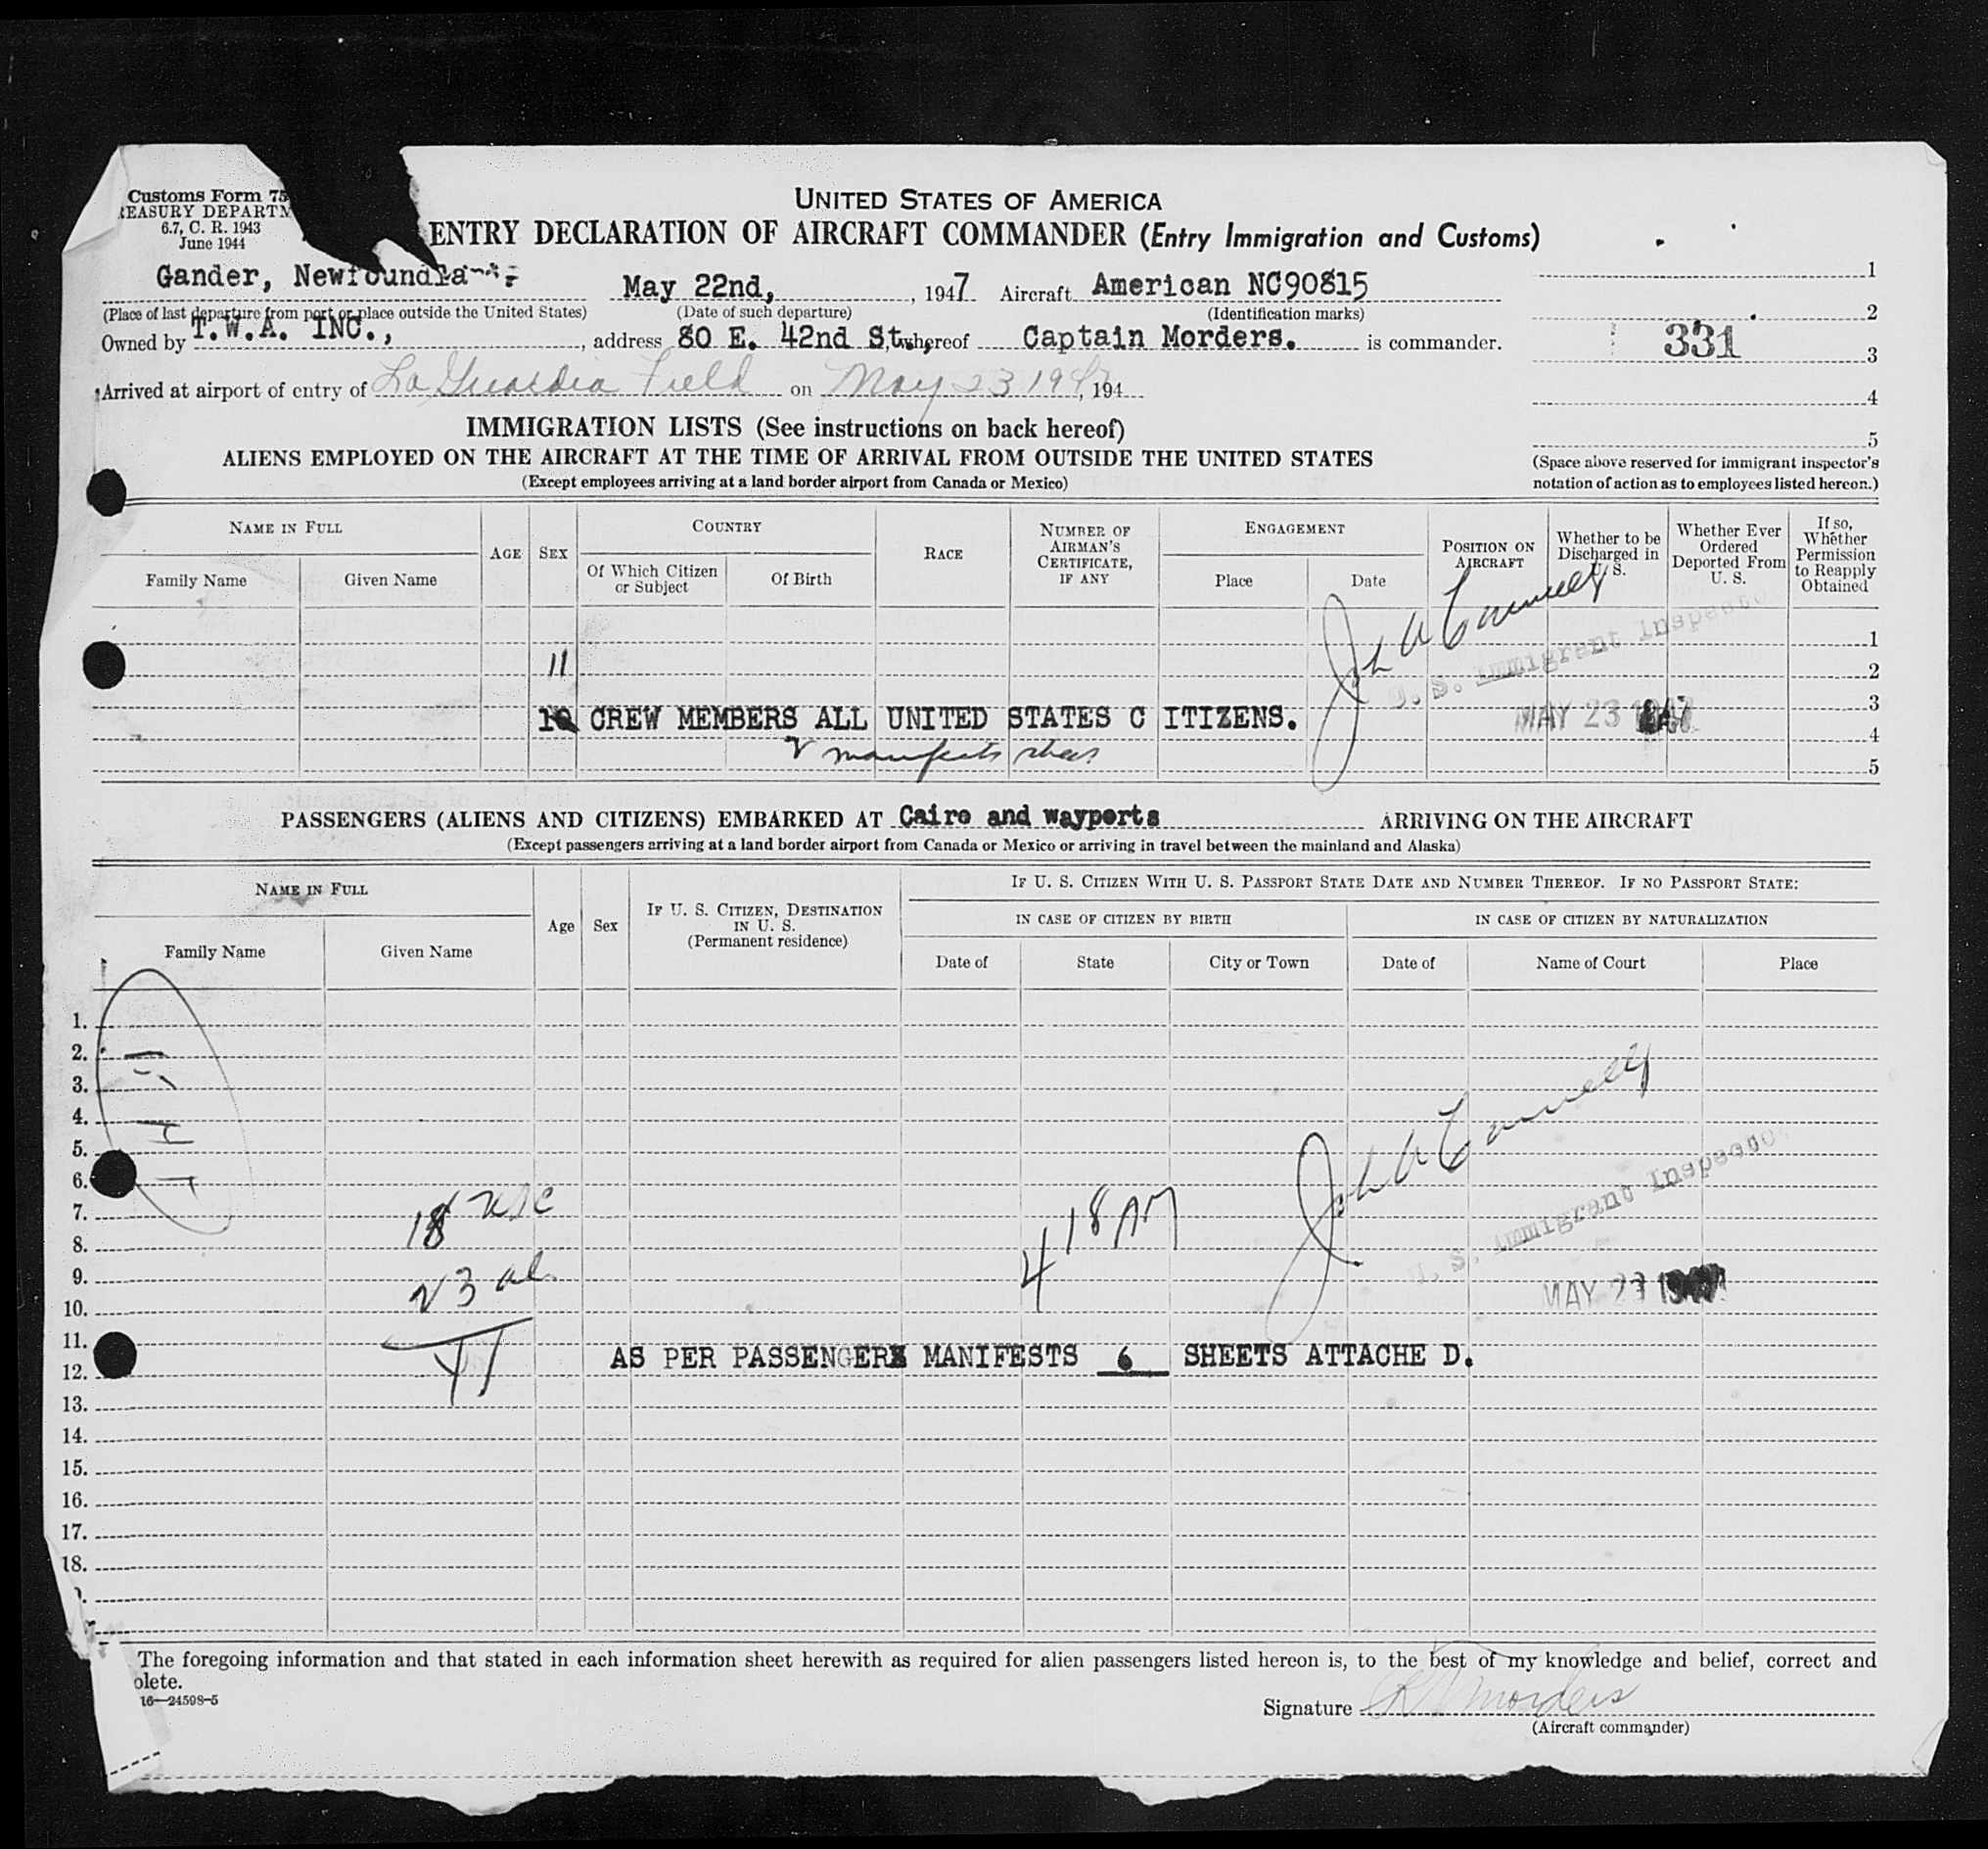 Customs Form 75
TREASURY DEPARTM
6.7, C. R. 1943
June 1944
UNITED STATES OF AMERICA
ENTRY DECLARATION OF AIRCRAFT COMMANDER (Entry Immigration and Customs)
Gander, Newfoundla
May 22nd, , 1947 Aircraft American NC90815
(Place of last departure from port or place outside the United States) (Date of such departure) (Identification marks)
Owned by T.W.A. INC., , address 80 E. 42nd St., whereof Captain Morders. is commander.
Arrived at airport of entry of La Guardia Field on May 23 1947, 194
1
2
331
3
4
5
(Space above reserved for immigrant inspector's
notation of action as to employees listed hereon.)
IMMIGRATION LISTS (See instructions on back hereof)
ALIENS EMPLOYED ON THE AIRCRAFT AT THE TIME OF ARRIVAL FROM OUTSIDE THE UNITED STATES
(Except employees arriving at a land border airport from Canada or Mexico)
NAME IN FULL
Family Name
Given Name
AGE
SEX
COUNTRY
Of Which Citizen or Subject
Of Birth
RACE
NUMBER OF AIRMAN'S CERTIFICATE, IF ANY
ENGAGEMENT
Place
Date
POSITION ON AIRCRAFT
Whether to be Discharged in U. S.
Whether Ever Ordered Deported From U. S.
If so, Whether Permission to Reapply Obtained
John A Connelly
U. S. Immigrant Inspector
1
11
2
3
10 CREW MEMBERS ALL UNITED STATES C ITIZENS.
MAY 23 1947
4
5
PASSENGERS (ALIENS AND CITIZENS) EMBARKED AT Cairo and wayports ARRIVING ON THE AIRCRAFT
(Except passengers arriving at a land border airport from Canada or Mexico or arriving in travel between the mainland and Alaska)
NAME IN FULL
Family Name
Given Name
Age
Sex
IF U. S. CITIZEN, DESTINATION IN U. S.
(Permanent residence)
IF U. S. CITIZEN WITH U. S. PASSPORT STATE DATE AND NUMBER THEREOF. IF NO PASSPORT STATE:
IN CASE OF CITIZEN BY BIRTH
IN CASE OF CITIZEN BY NATURALIZATION
Date of
State
City or Town
Date of
Name of Court
Place
1.
2.
3.
4.
5.
6.
7.
8.
9.
10.
11.
12.
13.
14.
15.
16.
17.
18.
18 USC
23 al.
41
4 18 PM
John A Connelly
U. S. Immigrant Inspector
MAY 23 1947
AS PER PASSENGERS MANIFESTS 6 SHEETS ATTACHE D.
The foregoing information and that stated in each information sheet herewith as required for alien passengers listed hereon is, to the best of my knowledge and belief, correct and
plete.
16—24598-5
Signature Morders
(Aircraft commander)